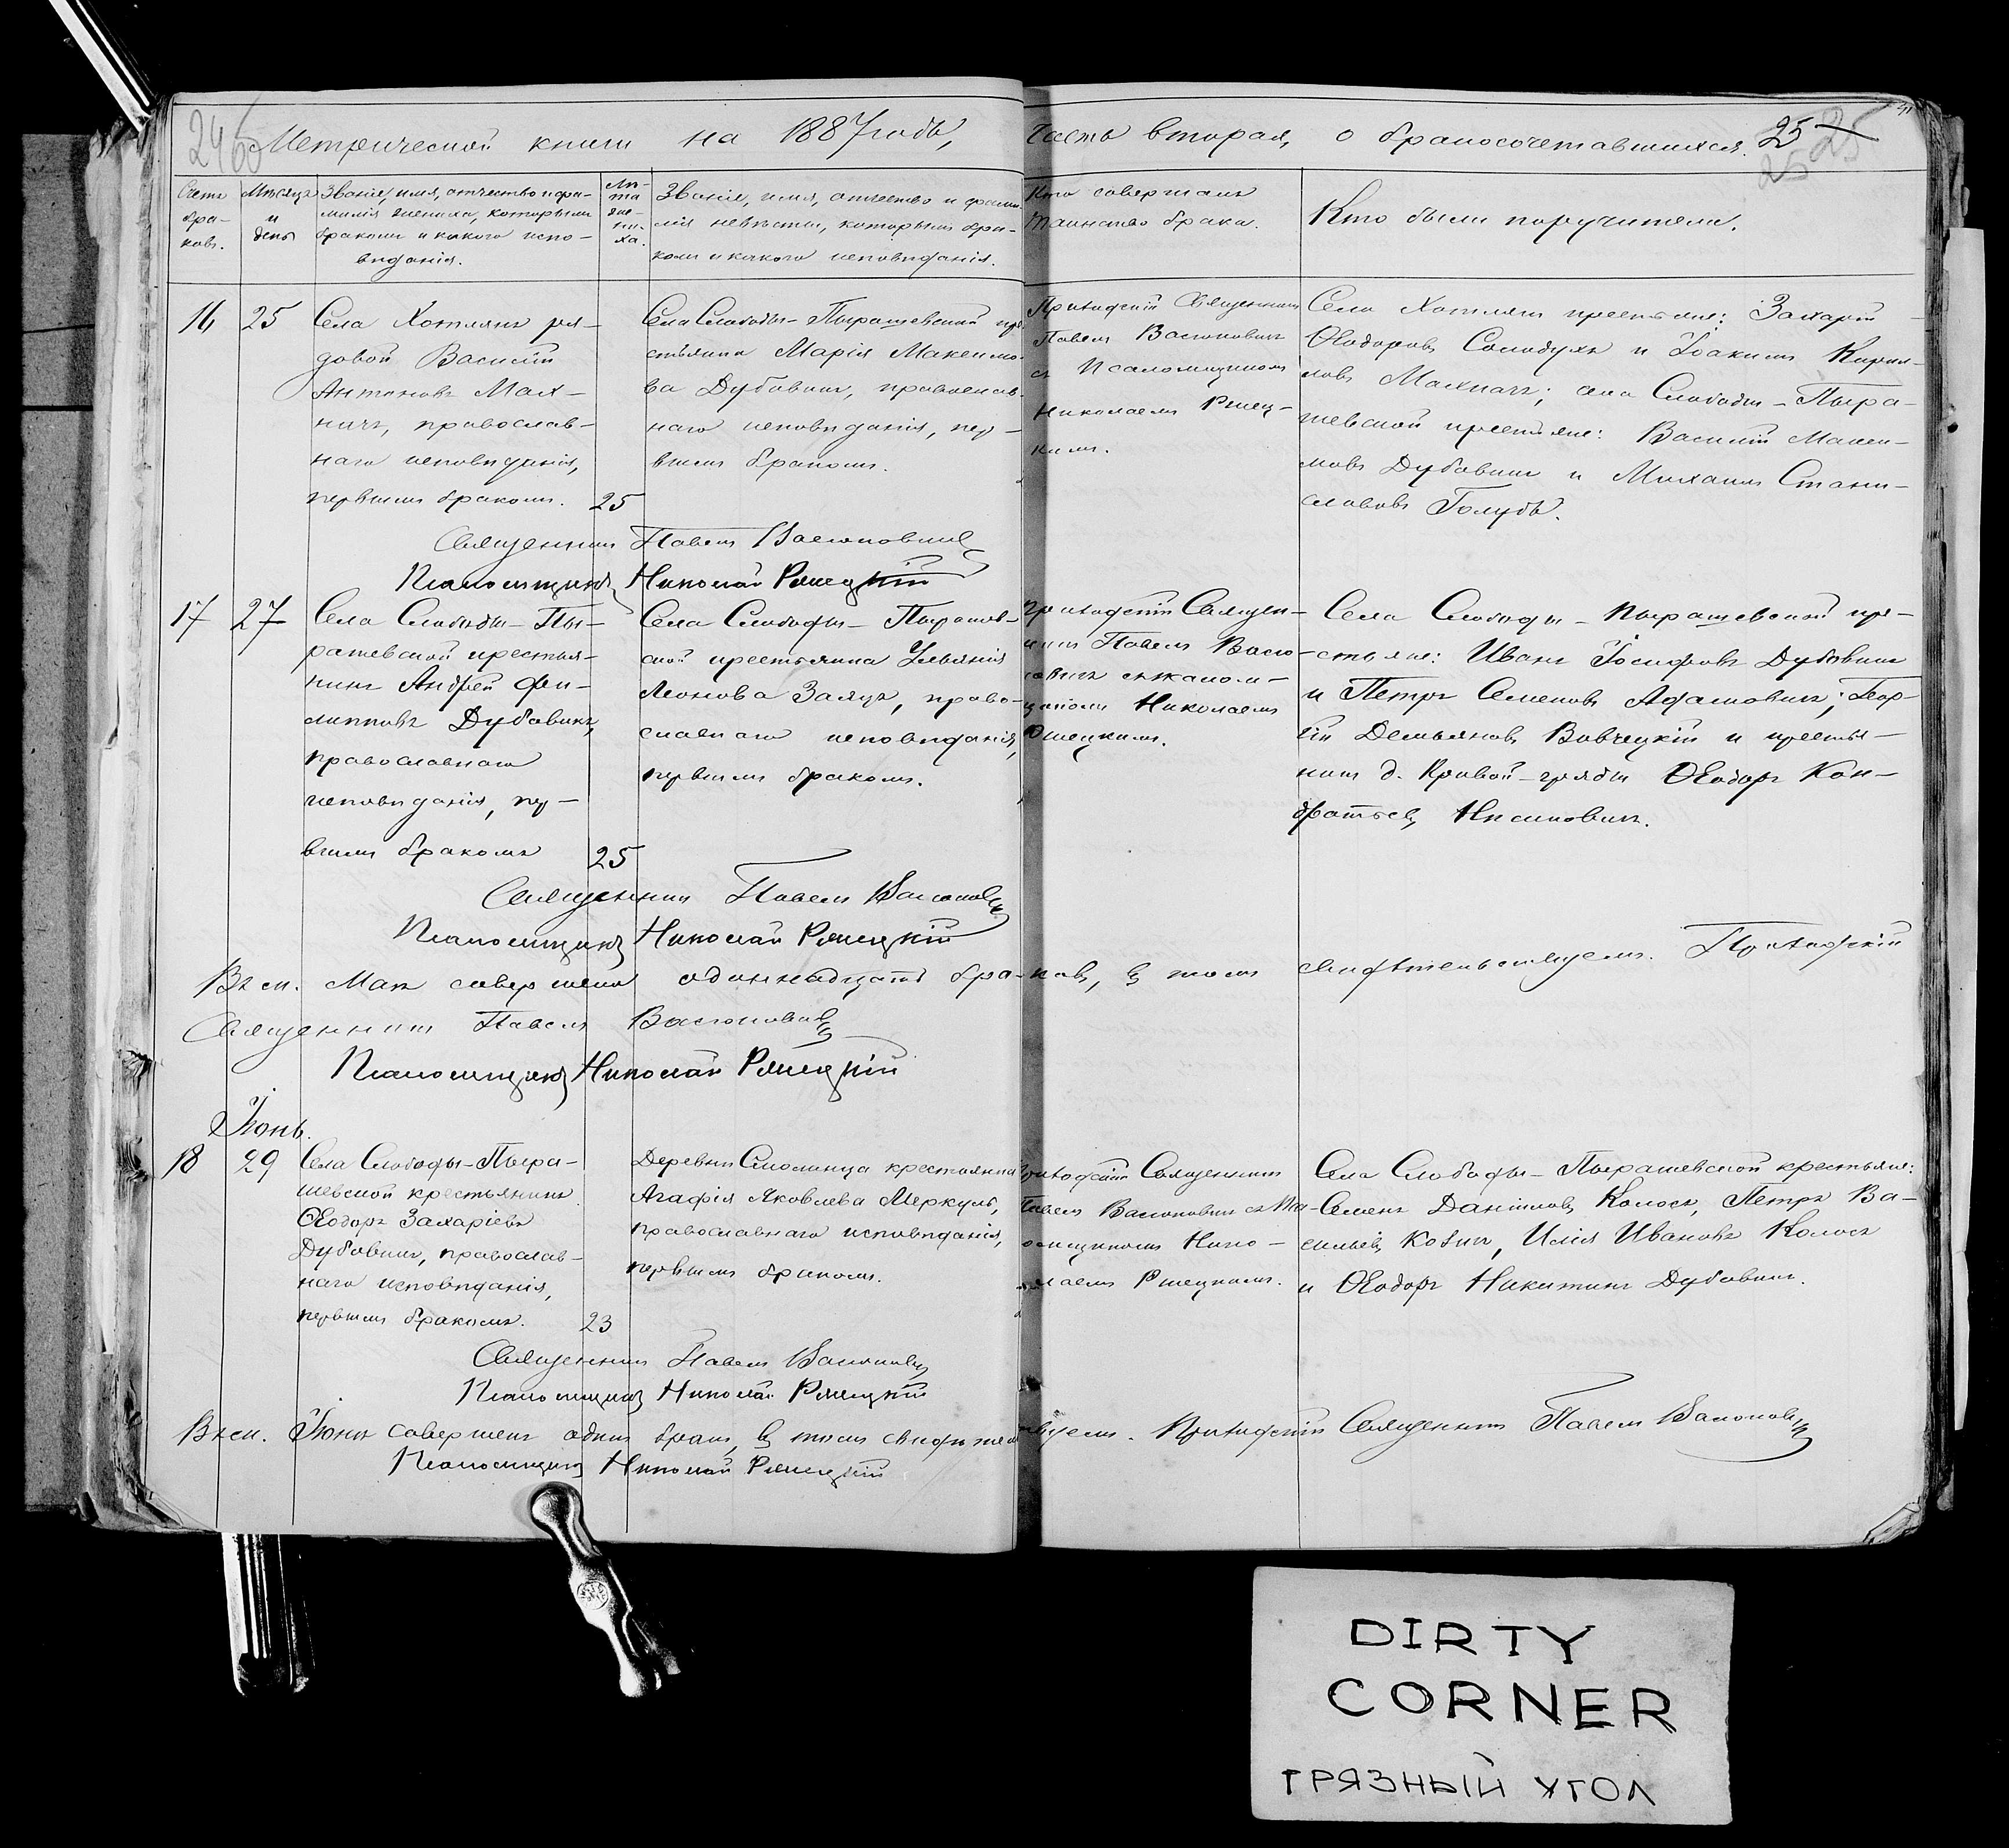 246 Метрической книги на 1887 годъ, Часть вторая, о бракосочетавшихся. 25
25 25
Счетъ бра-
ковъ.
Мѣсяцъ
и
день
Званіе, имя, отчество и фа-
милія жениха, которымъ
бракомъ и какого испо-
вѣданія.
Лѣ-
та
же-
ни-
ха.
Званіе, имя, отчество и фами-
лія невѣсты, которымъ бра-
комъ и какого исповѣданія.
Кто совершалъ
Таинство брака.
Кто были поручители.
16
25
Села Хотлянъ ря-
довой Василій
Антоновъ Мах-
ничъ, православ-
наго исповѣданія,
первымъ бракомъ.
25
Села Слободы-Пырашевской кре-
стьянка Марія Максимо-
ва Дубовикъ, православ-
наго исповѣданія, пер-
вымъ бракомъ.
Приходскій Священникъ
Павелъ Васюковичъ
съ Псаломщикомъ
Николаемъ Рящец-
кимъ.
Села Хотлянъ крестьяне: Захарій
Ѳеодоровъ Солодуха и Іоакимъ Кирил-
ловъ Махничъ; села Слободы-Пыра-
шевской крестьяне: Василій Макси-
мовъ Дубовикъ и Михаилъ Стани-
славовъ Голубъ.
Священникъ Павелъ Васюковичъ
Псаломщикъ Николай
17
27
Села Слободы-Пы-
рашевской крестья-
нинъ Андрей Фи-
липповъ Дубовикъ,
православнаго
исповѣданія, пер-
вымъ бракомъ
25
Села Слободы-Пырашев-
ской крестьянка Ульянія
Леонова Заяцъ, право-
славнаго исповѣданія,
первымъ бракомъ.
Приходскій Священ-
никъ Павелъ Васю-
ковичъ съ Псалом-
щикомъ Николаемъ
Села Слободы-Пырашевской кре-
стьяне: Иванъ Іосифовъ Дубовикъ
и Петръ Семеновъ Адамовичъ; Геор-
гій Демьяновъ Вовчецкій и крестья-
нинъ д. Кривой-гряды Ѳеодоръ Кон-
дратьевъ
Священникъ Павелъ Васюковичъ
Псаломщикъ Николай
Въ м. Маѣ совершено одиннадцать бра-ковъ, въ томъ свидѣтельствуемъ. Приходскій
Священникъ Павелъ Васюковичъ
Псаломщикъ Николай
Іюнь.
18
29
Села Слободы-Пыра-
шевской крестьянинъ
Ѳеодоръ Захаріевъ
Дубовикъ, православ-
наго исповѣданія,
первымъ бракомъ.
23
Деревни Смолинца крестьянка
Агафія Яковлева Меркуль,
православнаго исповѣданія,
первымъ бракомъ.
Приходскій Священникъ
Павелъ Васюковичъ съ Пса-
ломщикомъ Нико-
лаемъ
Села Слободы-Пырашевской крестьяне:
Семенъ Даніиловъ Колосъ, Петръ Ва-
сильевъ Козикъ, Илія Ивановъ Колосъ
и Ѳеодоръ Никитинъ Дубовикъ.
Священникъ Павелъ Васюковичъ
Псаломщикъ Николай
Въ м. Іюнѣ совершенъ одинъ бракъ, въ томъ свидѣтельствуемъ. Приходскій Священникъ Павелъ Васюковичъ
Псаломщикъ Николай
DIRTY
CORNER
ГРЯЗНЫЙ УГОЛ